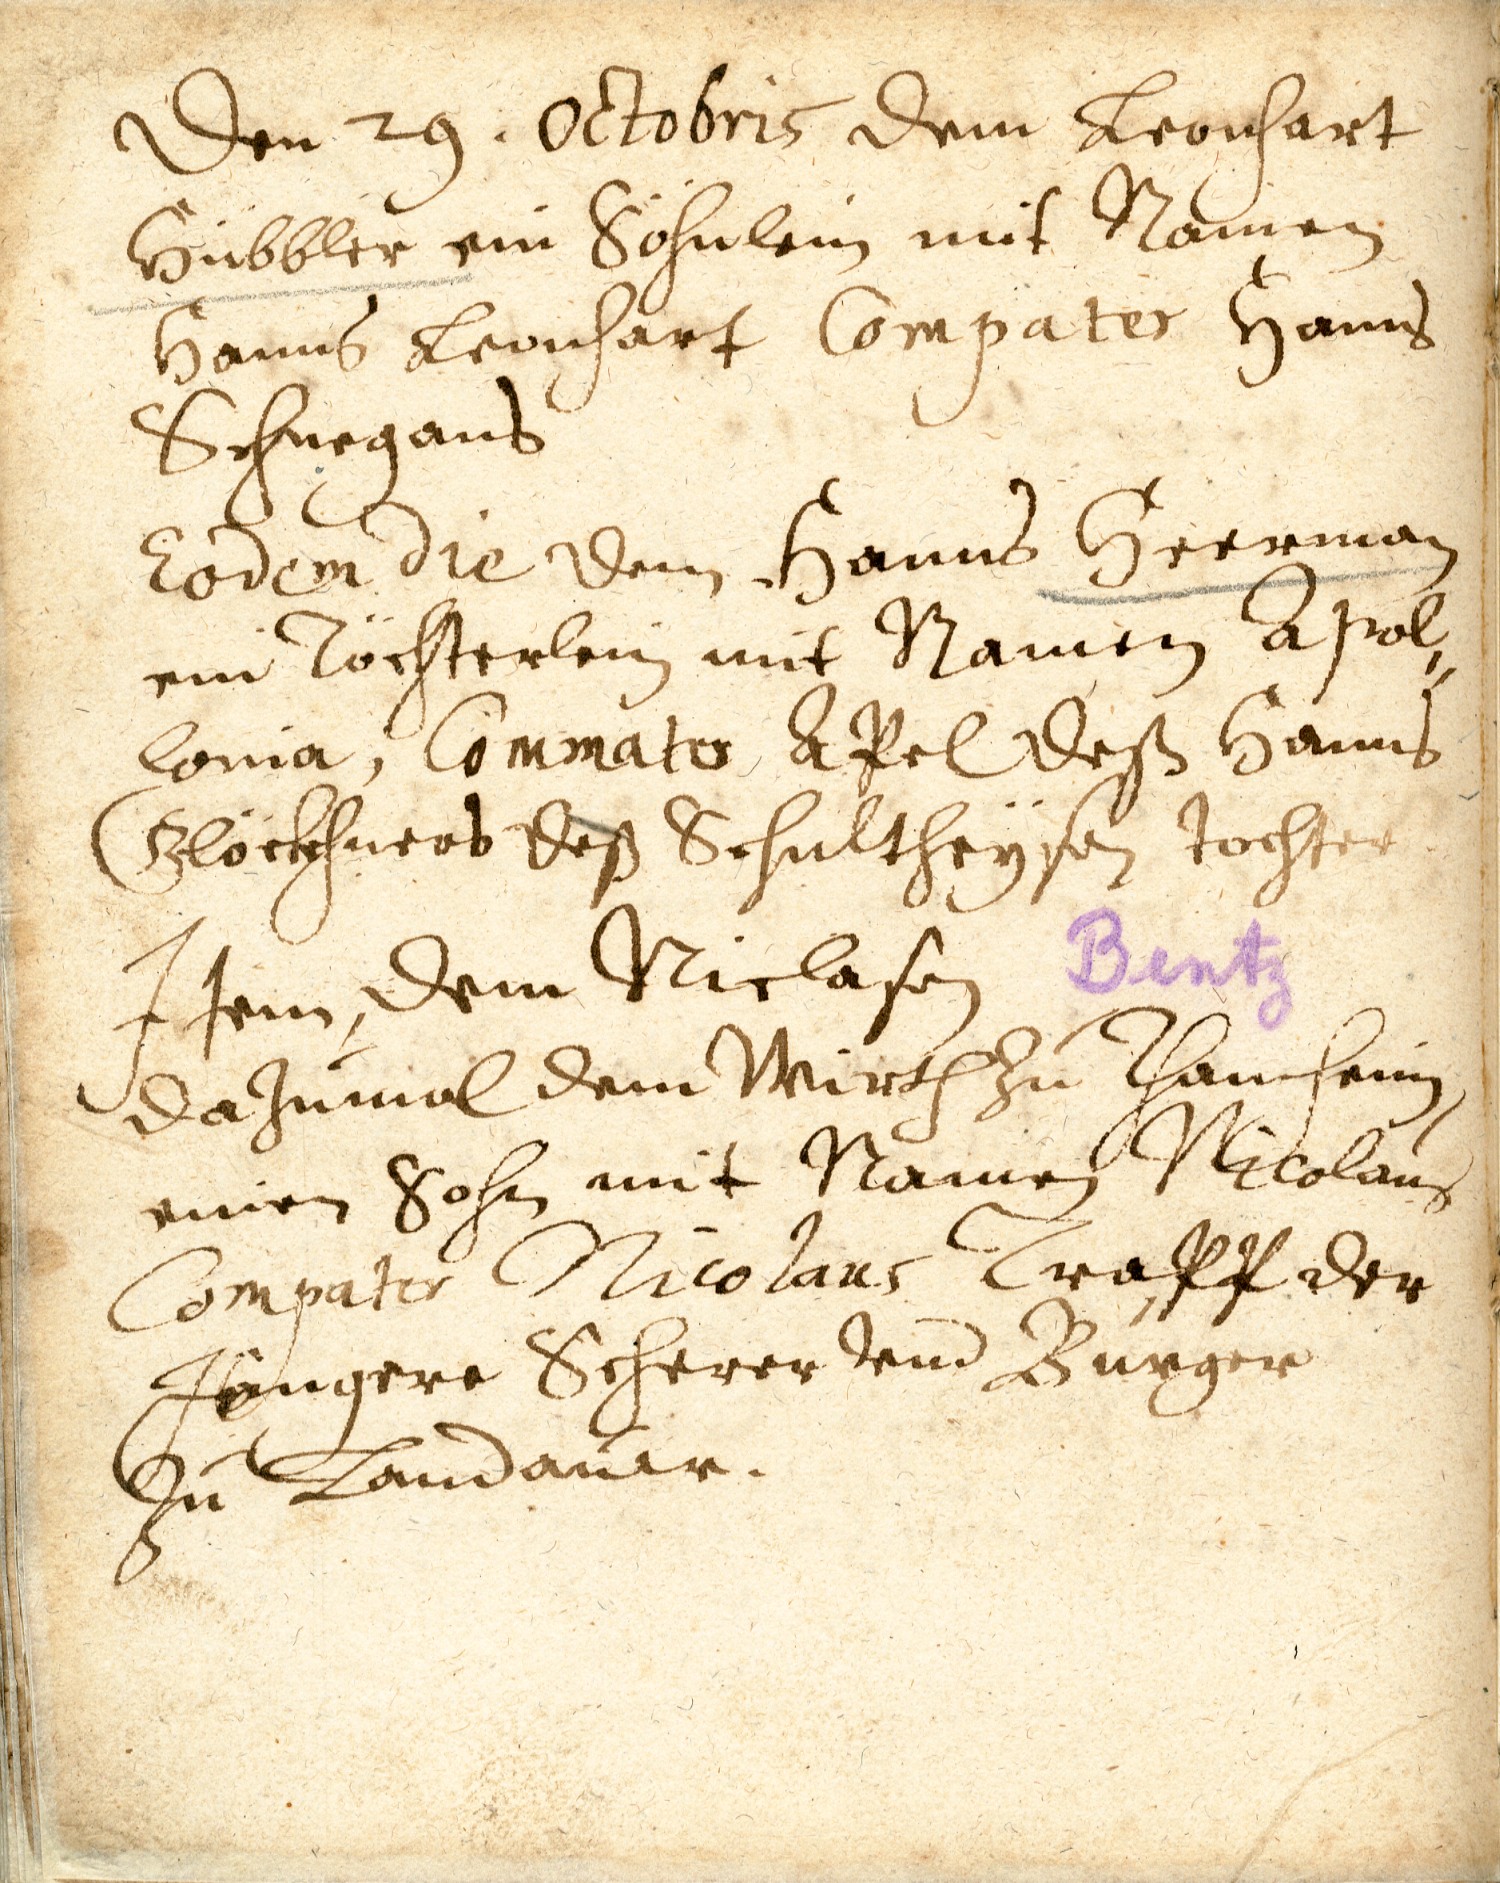 Den 29. Octobris dem Leonhart
Hübbler ein Söhnlein mit Namen
Hanns Leonhart Compater Hanns
Schnegans
Eodem die dem Hanns Heerman
ein Töchterlein mit Namen Apol„
lonia, Commater Apel deß Hanns
Glöckhners deß Schultheÿsen tochter
Item, dem Niclasen Bentz
dazumal dem Wirth zu Thamheim,
einen Sohn mit Namen Nicolaus
Compater Nicolaus Trapp der
Jüngere Scherer vnd Burger
zu Landauw.